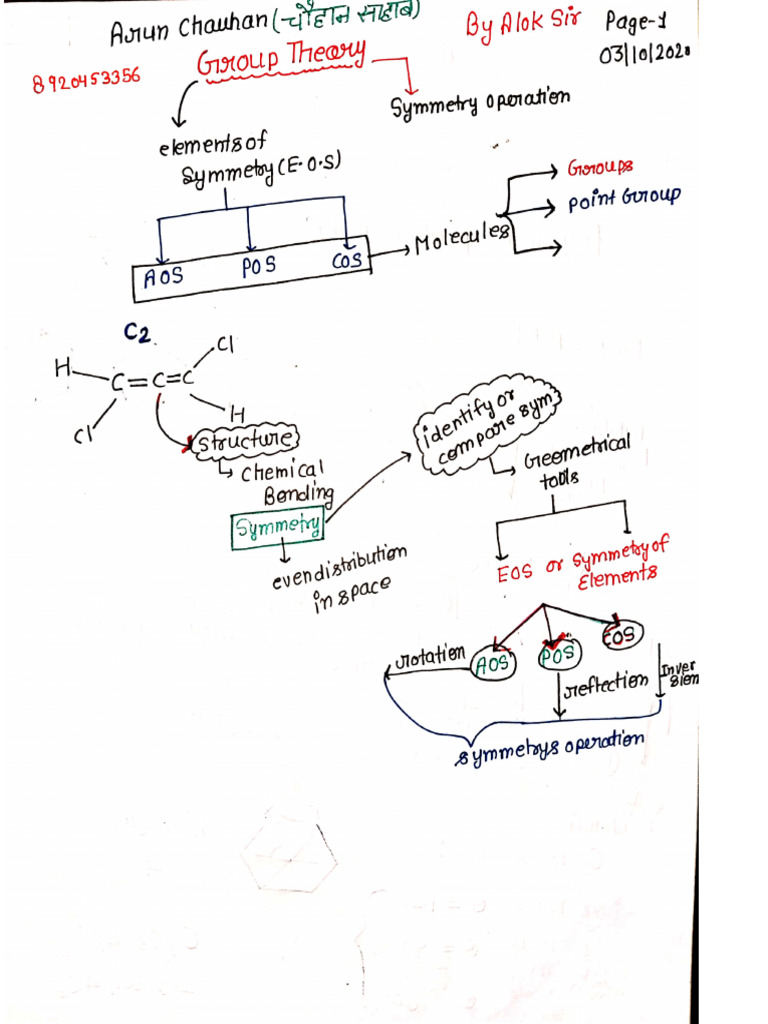 Arun Chauhan (चौहान साहाब) By Alok Sir Page-1
8920453356 Group Theory 03/10/2020
Symmetry operation
elements of
Symmetry (E.O.S)
Groups
Point Group
AOS POS COS Molecules
C2
H Cl
C=C=C
Cl H
structure
identify or
compare sym
Chemical
Bonding
Geometrical
tools
Symmetry
even distribution
in space
EOS or Symmetry of
Elements
rotation AOS POS COS
reflection Inver
sion
symmetrys operation